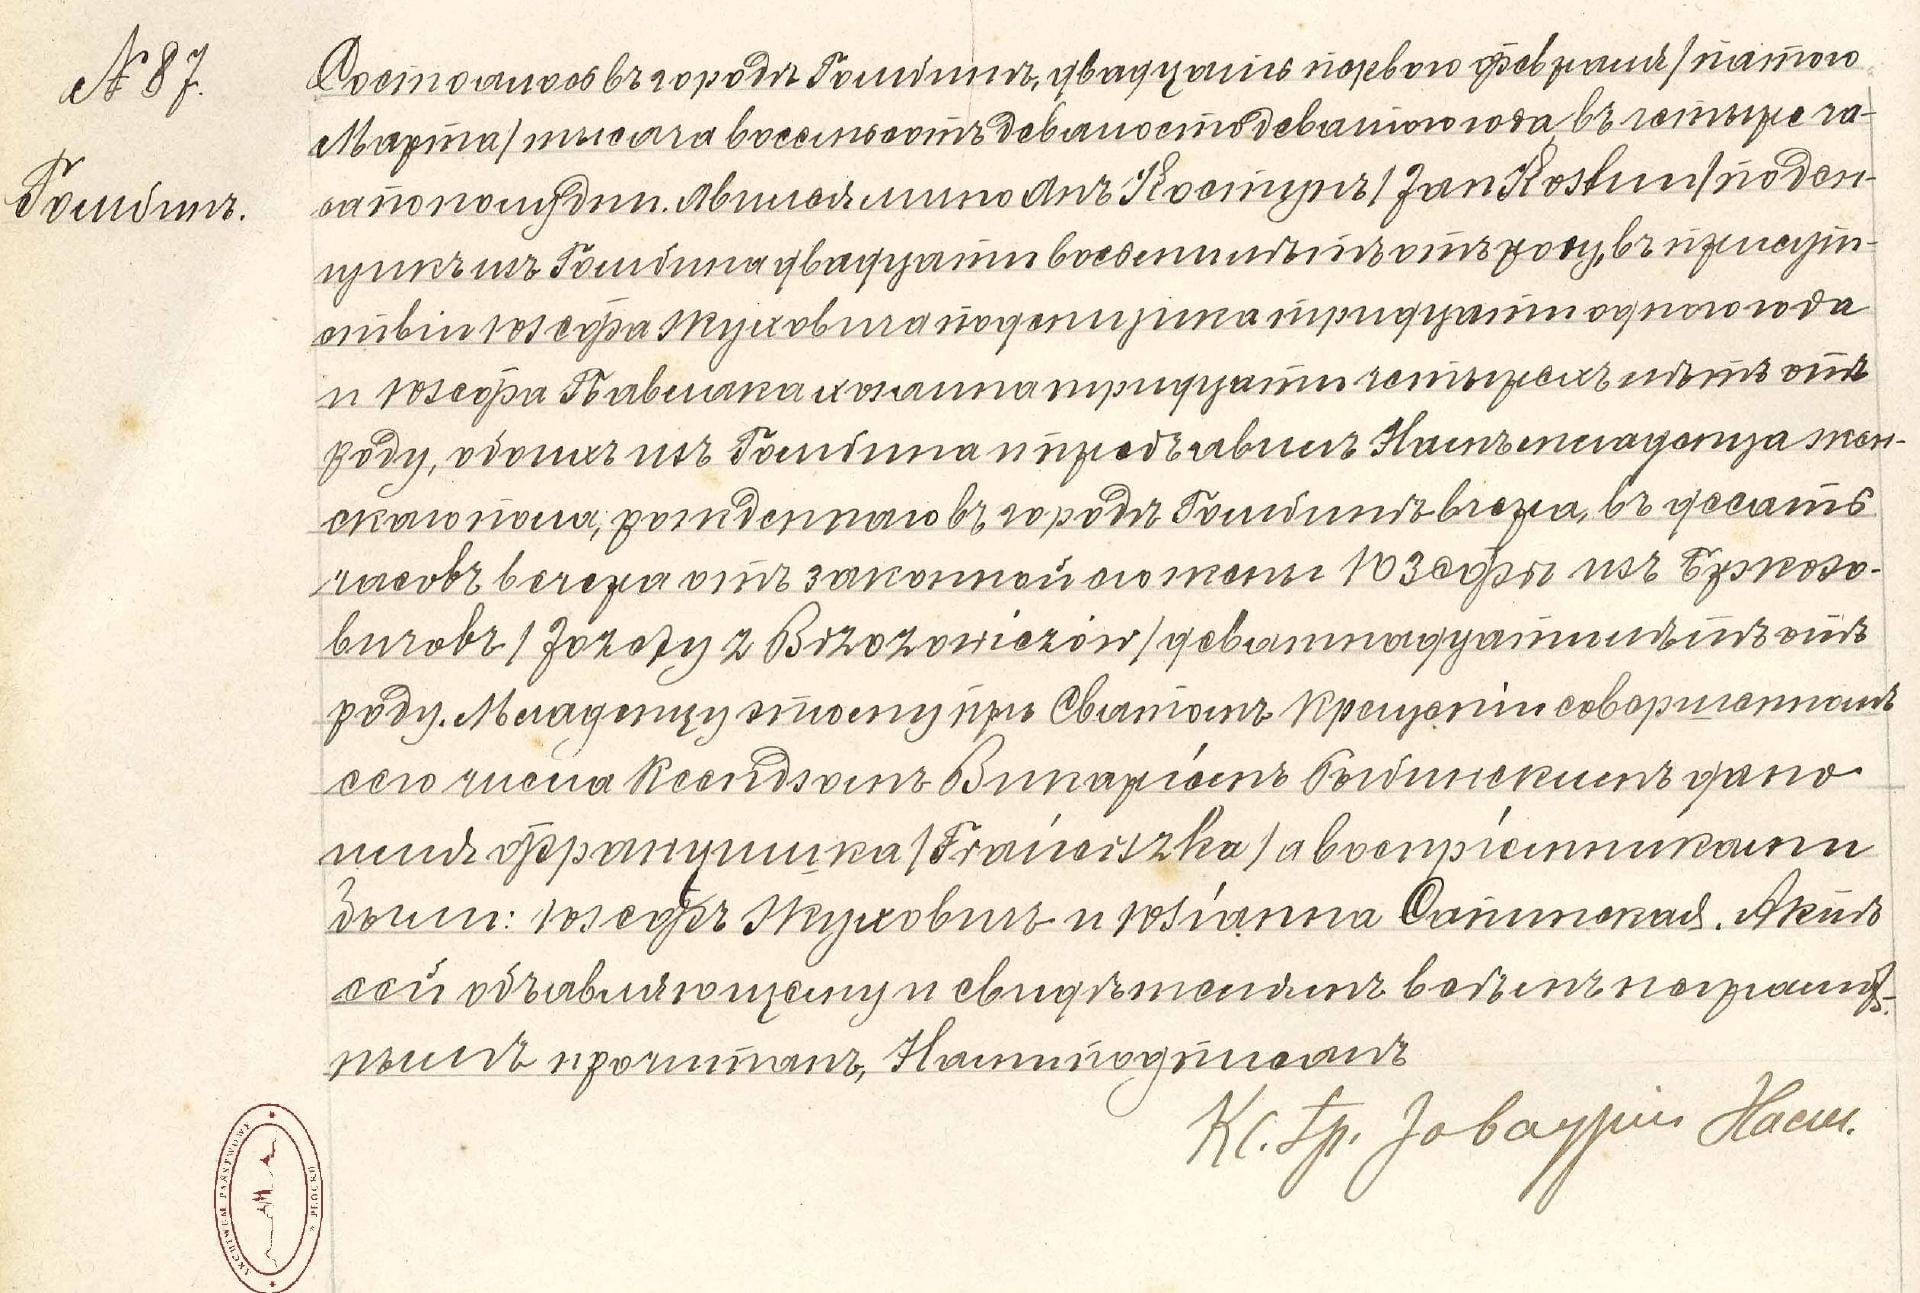 № 87.
Гомбинъ.
Состоялось въ городѣ Гомбинѣ, двадцать перваго Февраля /пятого
Марта/ тысяча восемьсотъ девяносто девятого года, въ четыре ча-
са пополудни. Явился лично Янъ Костунъ / Jan Kostun / поден-
щикъ изъ Гомбина двадцати восьми лѣтъ отъ роду, въ присут-
ствіи Юзефа Жуховича поденщика тридцати одного года
и Юзефа Павлака хозяина тридцати четырехъ лѣтъ отъ
роду, обоихъ изъ Гомбина и предъявилъ Намъ младенца жен-
скаго пола, рожденнаго въ городѣ Гомбинѣ вчера, въ десять
часовъ вечера отъ законной его жены Юзефы изъ Бржозо-
вичовъ / Józefy z Brzozowiczów / девятнадцати лѣтъ отъ
роду. Младенцу этому при Святомъ Крещеніи совершенномъ
сего числа Ксендзомъ Викаріемъ дано
имя Францишка / Franciszka / а воспріемниками
были: Юзефъ Жуховичъ и Юліанна. Актъ
сей объявляющему и свидѣтелямъ всѣмъ неграмот-
нымъ прочитанъ, Нами подписанъ
Кс. Гр. Наси.
ARCHIWUM PAŃSTWOWE * W PŁOCKU *